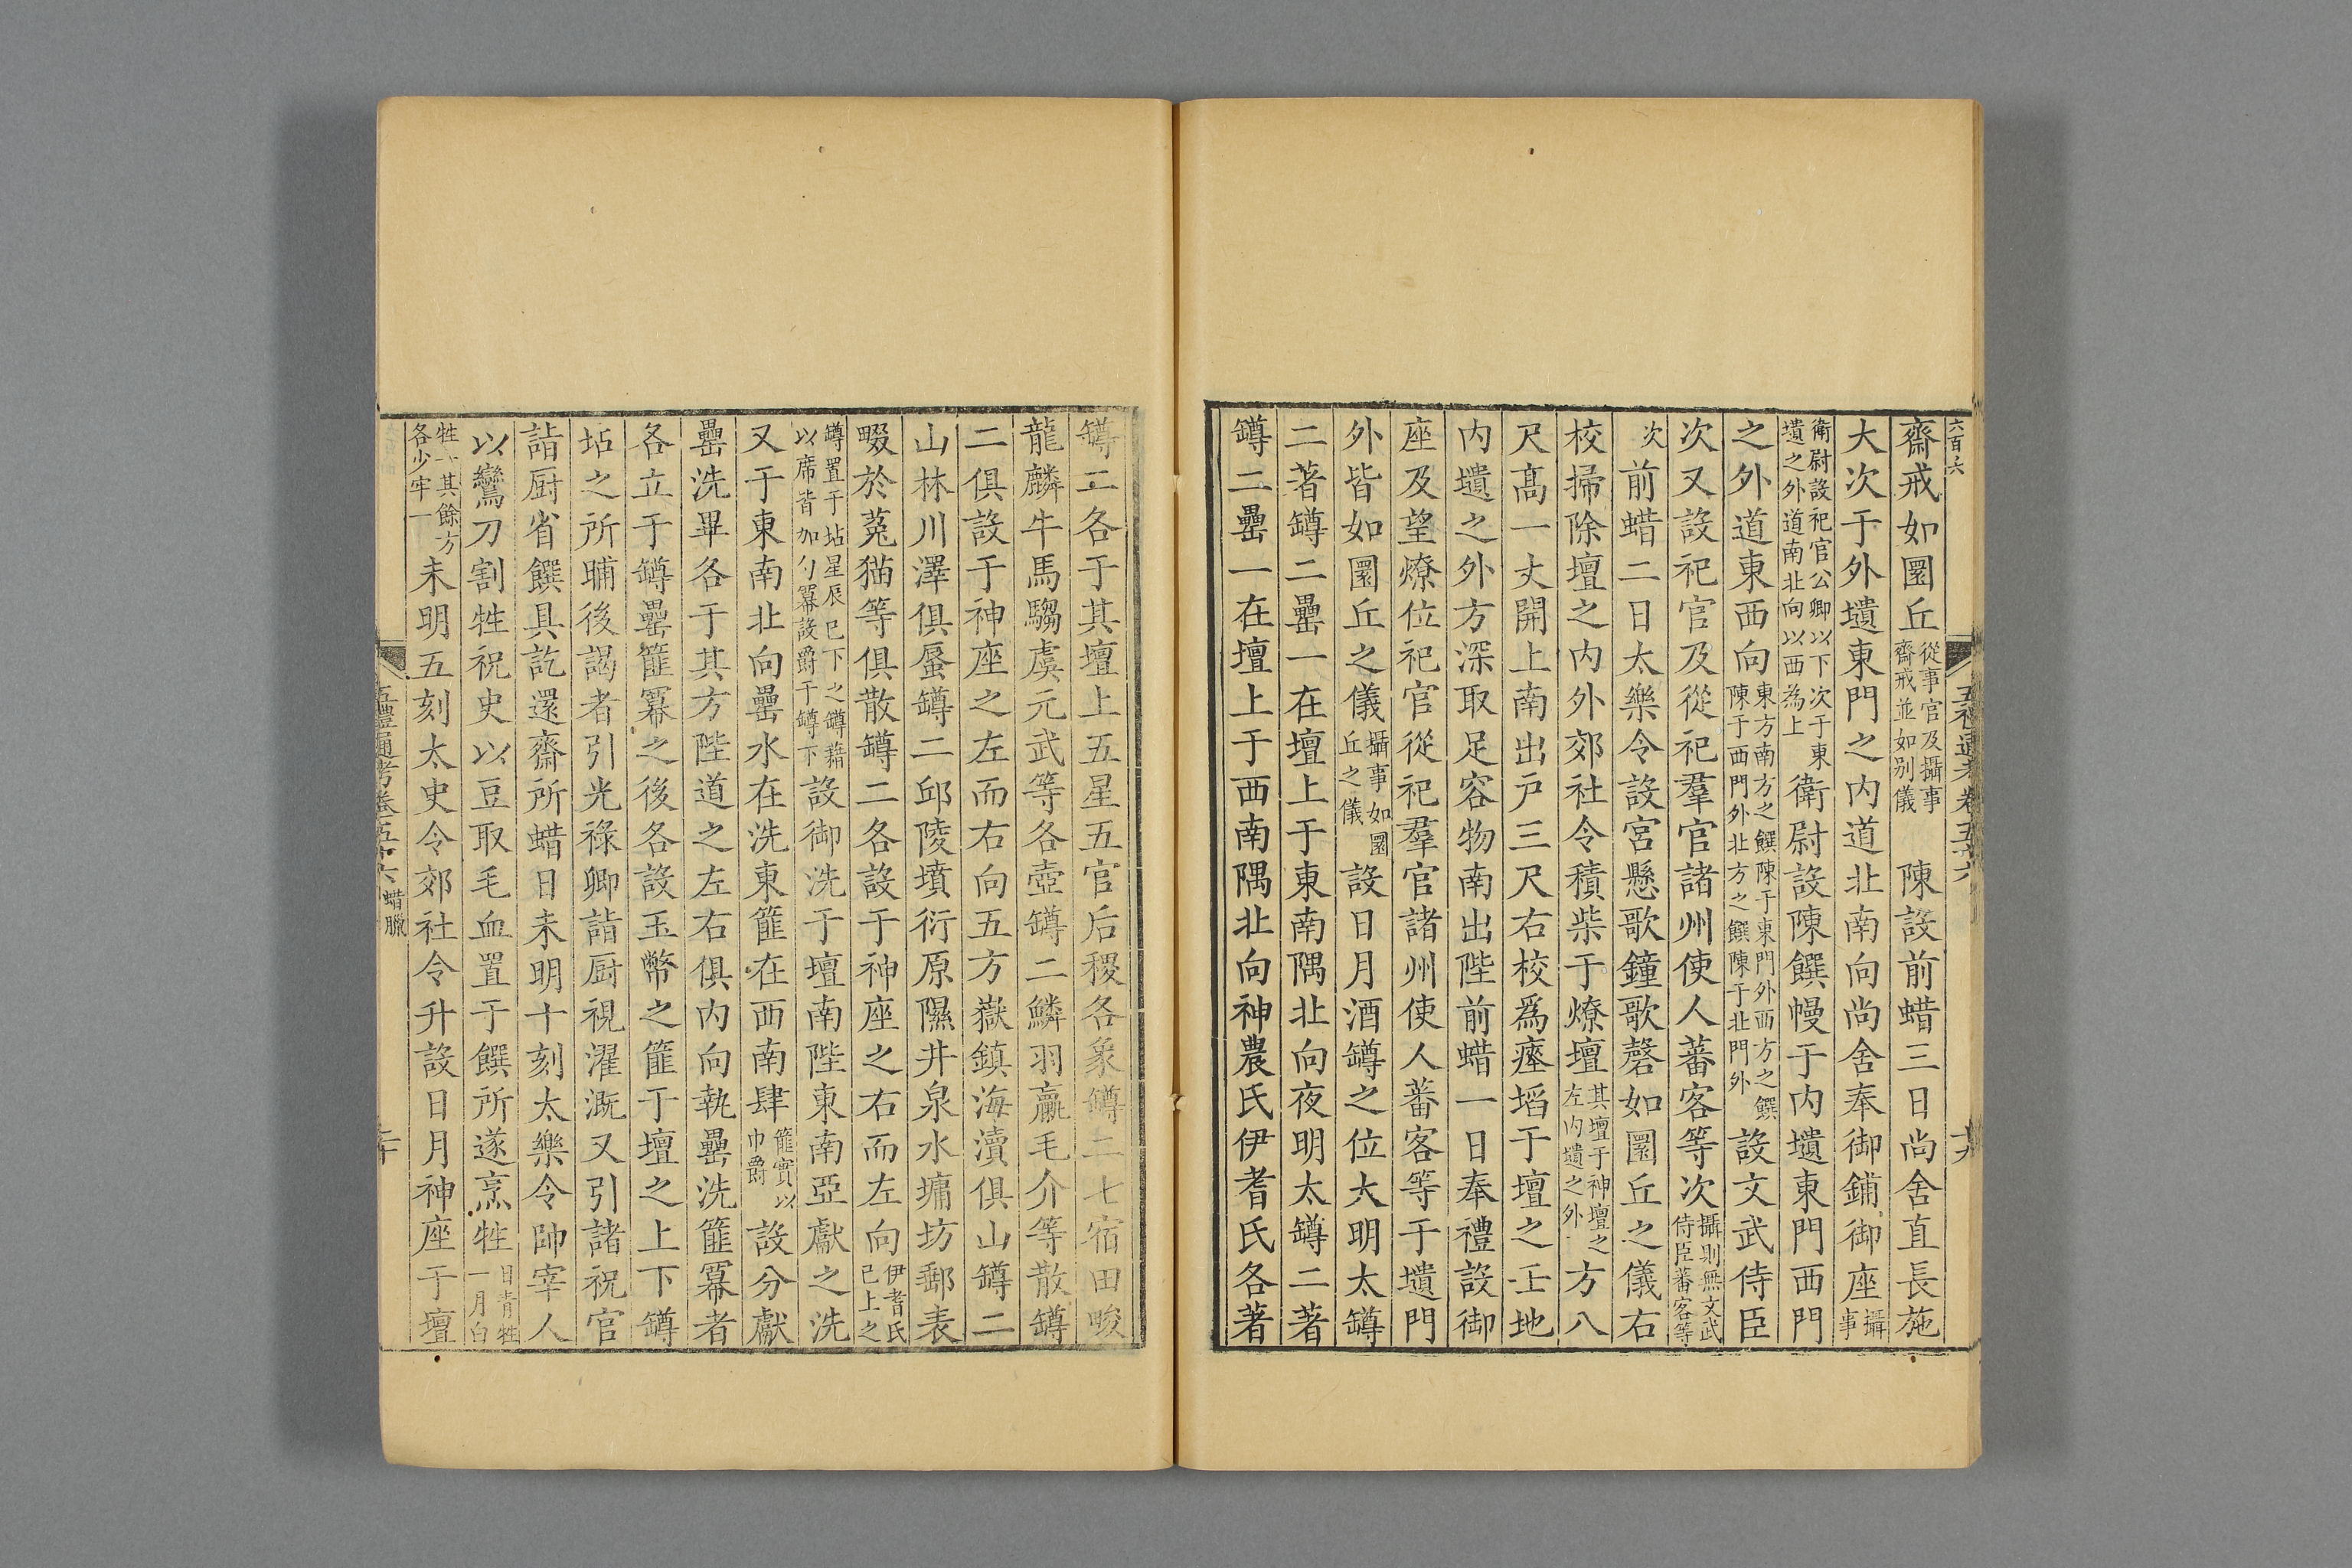 六百六
齋戒如圜丘從事官及攝事齋戒並如别儀 陳設前蜡三日尚舍直長施
大次于外壝東門之内道北南向尚舍奉御鋪御座攝事
衛尉設祀官公卿以下次于東壝之外道南北向以西為上衛尉設陳饌幔于内壝東門西門
之外道東西向東方南方之饌陳于東門外西方之饌陳于西門外北方之饌陳于北門外設文武侍臣
次又設祀官及從祀羣官諸州使人蕃客等次攝則無文武侍臣蕃客等
次前蜡二日太樂令設宮懸歌鐘歌磬如圜丘之儀右
校掃除壇之内外郊社令積柴于燎壇其壇于神壇之左内壝之外方八
尺高一丈開上南出戸三尺右校爲瘞埳于壇之壬地
内壝之外方深取足容物南出陛前蜡一日奉禮設御
座及望燎位祀官從祀羣官諸州使人蕃客等于壝門
外皆如圜丘之儀攝事如圜丘之儀設日月酒罇之位大明太罇
二著罇二罍一在壇上于東南隅北向夜明太罇二著
罇二罍一在壇上于西南隅北向神農氏伊耆氏各著
五禮通考卷五十六
罇二各于其壇上五星五官后稷各象罇二七宿田畯
龍麟牛馬騶虞元武等各壺罇二鱗羽臝毛介等散罇
二俱設于神座之左而右向五方嶽鎮海瀆俱山罇二
山林川澤俱蜃罇二邱陵墳衍原隰井泉水墉坊郵表
畷於菟猫等俱散罇二各設于神座之右而左向伊耆氏已上之
罇置于坫星辰已下之罇藉以席皆加勺冪設爵于罇下設御洗于壇南陛東南亞獻之洗
又于東南北向罍水在洗東篚在西南肆篚實以巾爵設分獻
罍洗畢各于其方陛道之左右俱内向執罍洗篚冪者
各立于罇罍篚冪之後各設玉幣之篚于壇之上下罇
坫之所晡後謁者引光祿卿詣厨視濯溉又引諸祝官
詣厨省饌具訖還齋所蜡日未明十刻太樂令帥宰人
以鸞刀割牲祝史以豆取毛血置于饌所遂烹牲日青牲一月白
牲一其餘方各少牢一未明五刻太史令郊社令升設日月神座于壇
五禮通考卷五十六 蜡臘